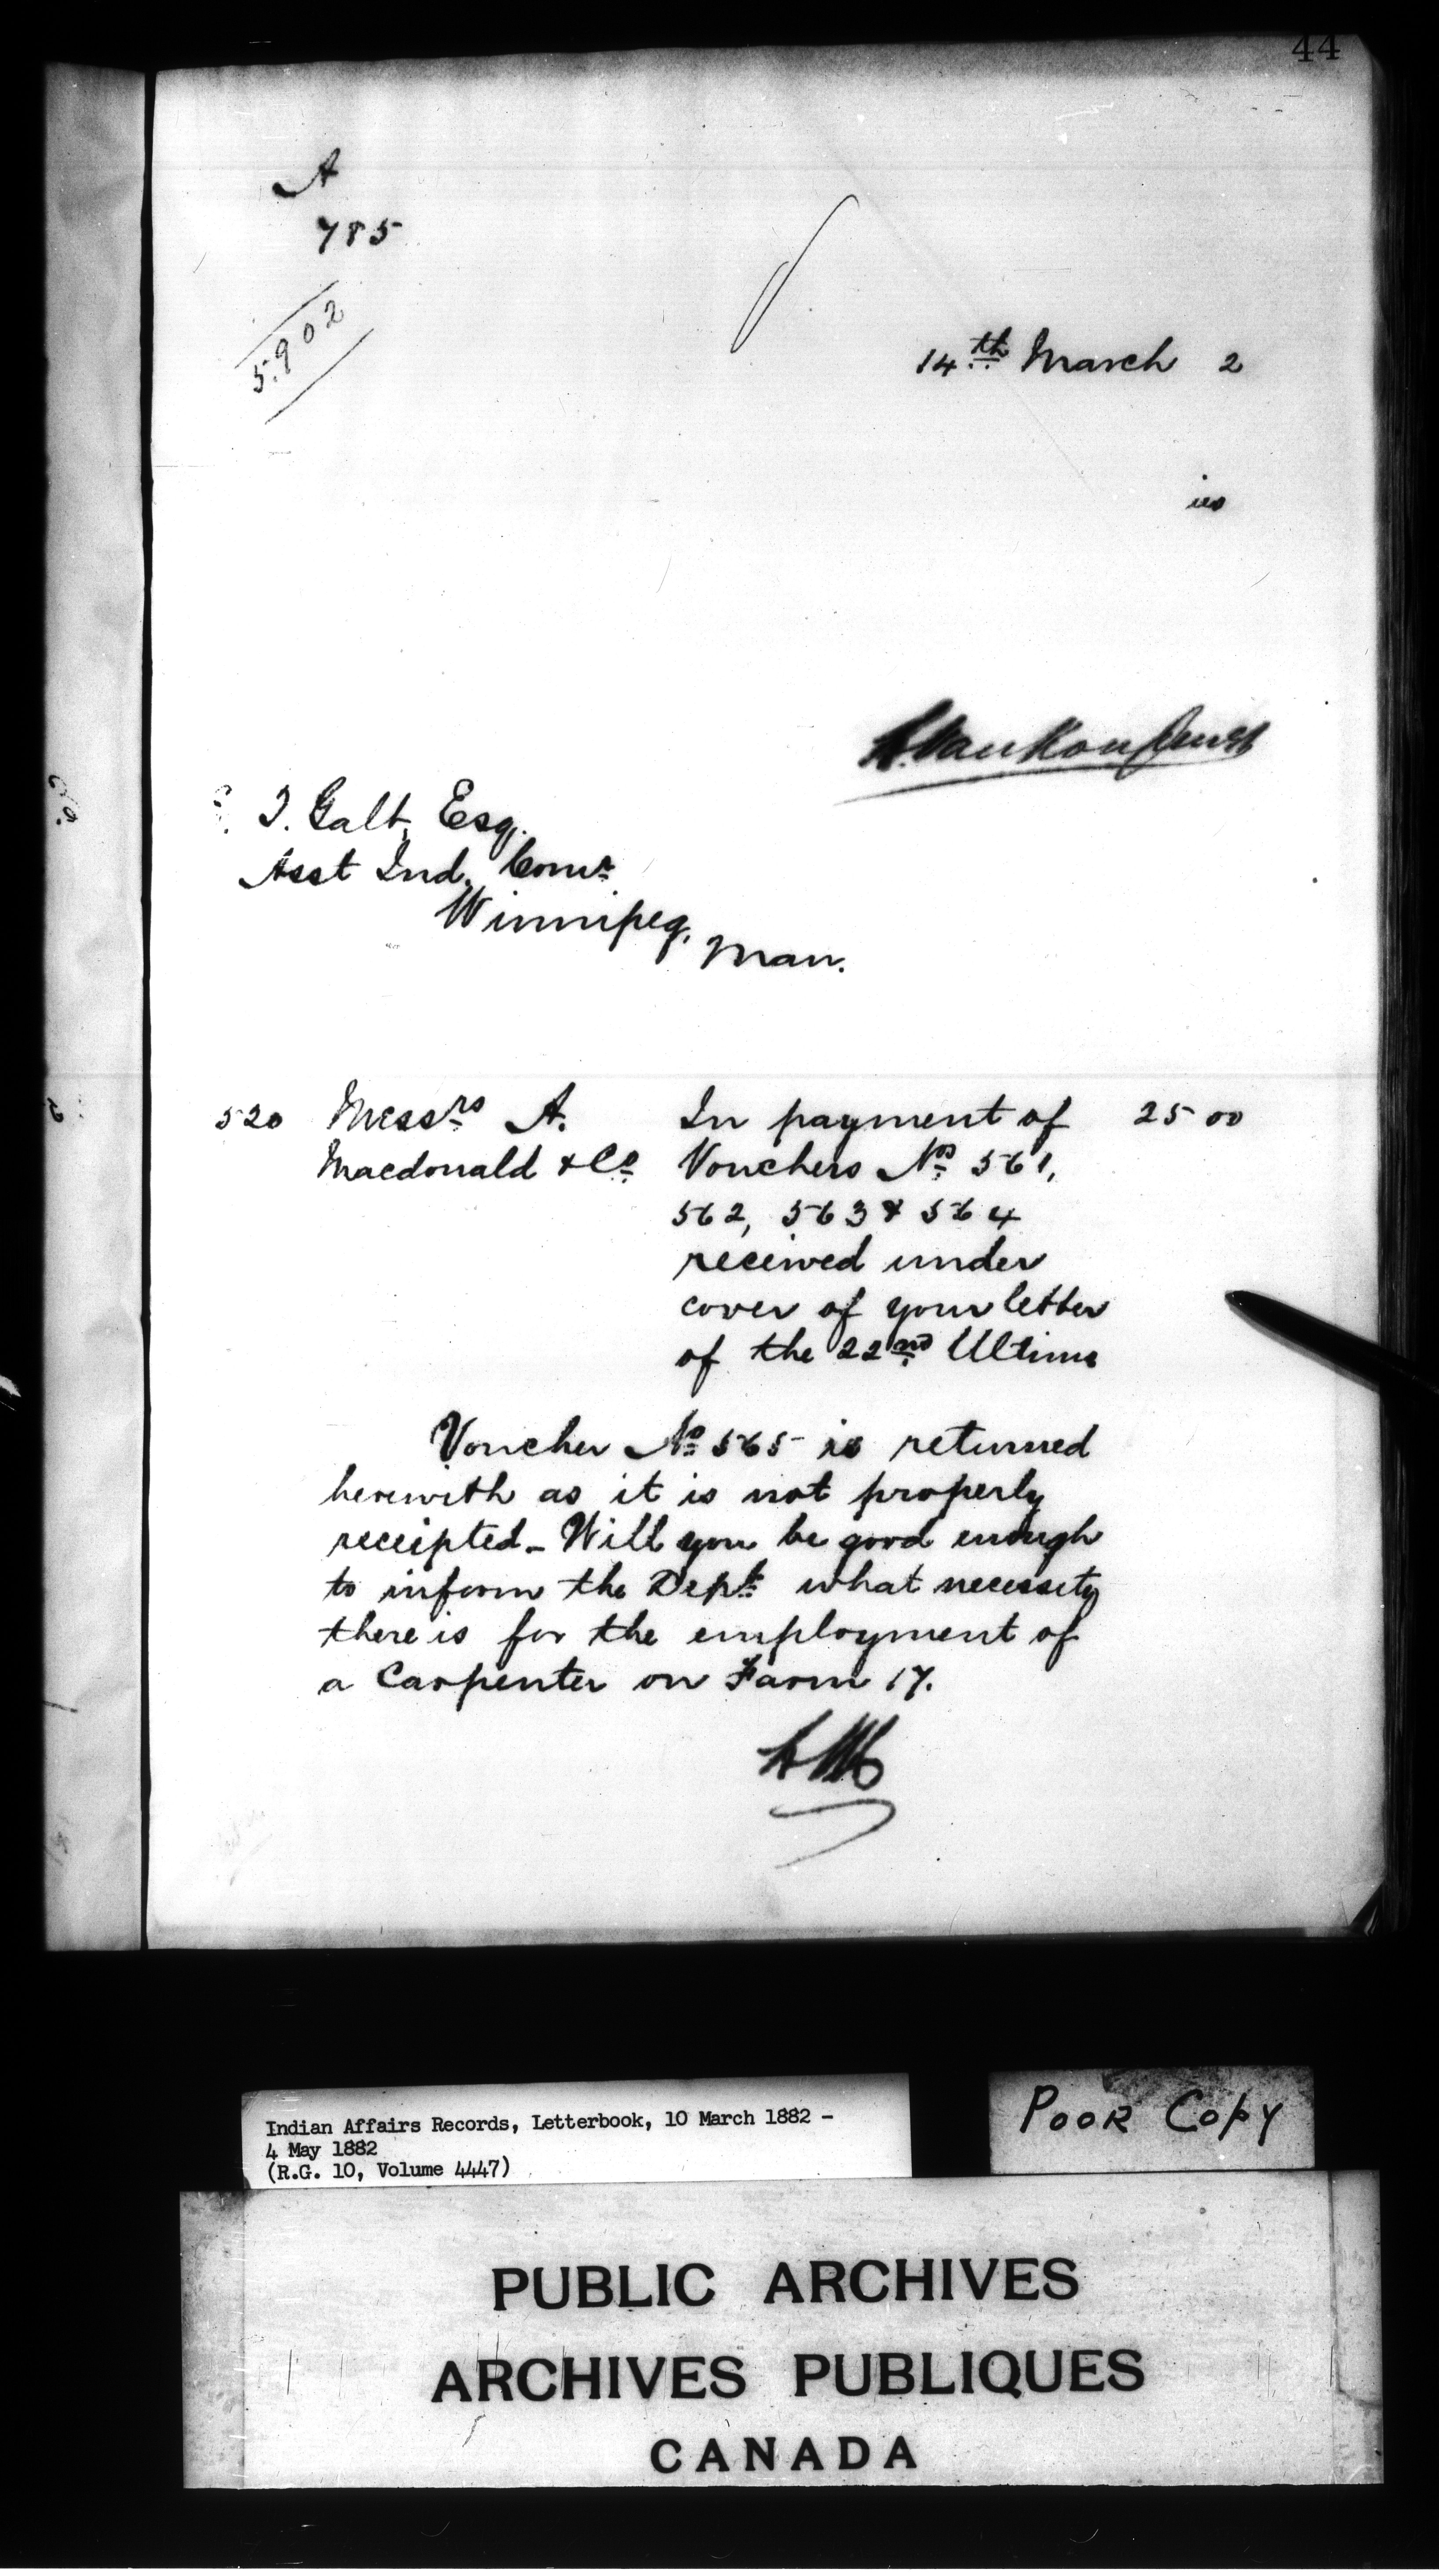 44
A
785
5902
14th March 2
is
L. Vankoughnet
T. Galt, Esq.
Asst Ind. Comr
Winnipeg,
Man.
520 Messrs A. In payment of 25 00
Macdonald & Co. Vouchers Nos 561,
562, 563 & 564
received under
cover of your letter
of the 22nd Ultimo
Voucher No 565 is returned
herewith as it is not properly
receipted - Will you be good enough
to inform the Dept. what necessity
there is for the employment of
a Carpenter on Farm 17.
Indian Affairs Records, Letterbook, 10 March 1882 -
4 May 1882
(R.G. 10, Volume 4447)
POOR COPY
PUBLIC ARCHIVES
ARCHIVES PUBLIQUES
CANADA